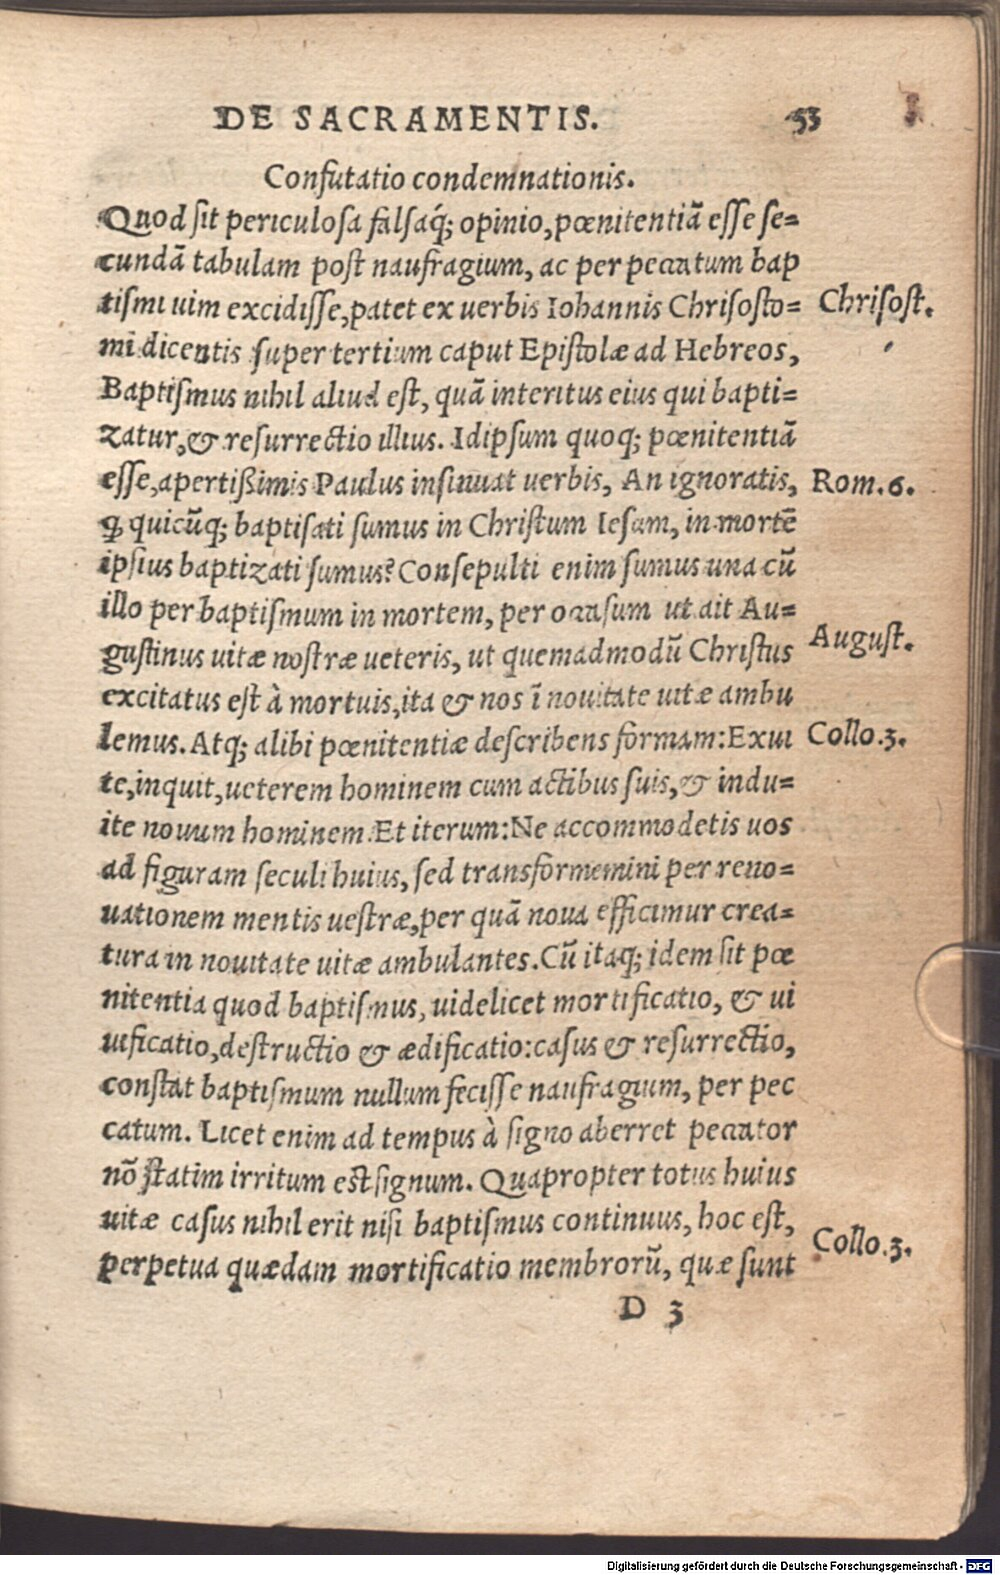 DE SACRAMENTIS. 53
Confutatio condemnationis.
Quod sit periculosa falsaq́; opinio, pœnitentiā esse se=
cundā tabulam post naufragium, ac per peccatum bap
tismi uim excidisse, patet ex uerbis Iohannis Chrisosto=
Chrisost.
mi dicentis super tertium caput Epistolæ ad Hebreos,
Baptismus nihil aliud est, quā interitus eius qui bapti=
zatur, & resurrectio illius. Idipsum quoq; pœnitentiā
esse, apertißimis Paulus insinuat uerbis, An ignoratis,
Rom. 6.
ꝙ quicūq; baptisati sumus in Christum Iesum, in mortē
ipsius baptizati sumus? Consepulti enim sumus una cū
illo per baptismum in mortem, per occasum ut ait Au=
August.
gustinus uitæ nostræ ueteris, ut quemadmodū Christus
excitatus est à mortuis, ita & nos ī nouitate uitæ ambu
lemus. Atq; alibi pœnitentiæ describens formam: Exui
Collo. 3.
te, inquit, ueterem hominem cum actibus suis, & indu=
ite nouum hominem. Et iterum: Ne accommodetis uos
ad figuram seculi huius, sed transformemini per reno=
uationem mentis uestræ, per quā noua efficimur crea=
tura in nouitate uitæ ambulantes. Cū itaq; idem sit pœ
nitentia quod baptismus, uidelicet mortificatio, & ui
uificatio, destructio & ædificatio: casus & resurrectio,
constat baptismum nullum fecisse naufragium, per pec
catum. Licet enim ad tempus à signo aberret peccator
nō statim irritum est signum. Quapropter totus huius
uitæ casus nihil erit nisi baptismus continuus, hoc est,
Collo. 3.
perpetua quædam mortificatio membrorū, quæ sunt
D 3
Digitalisierung gefördert durch die Deutsche Forschungsgemeinschaft - DFG